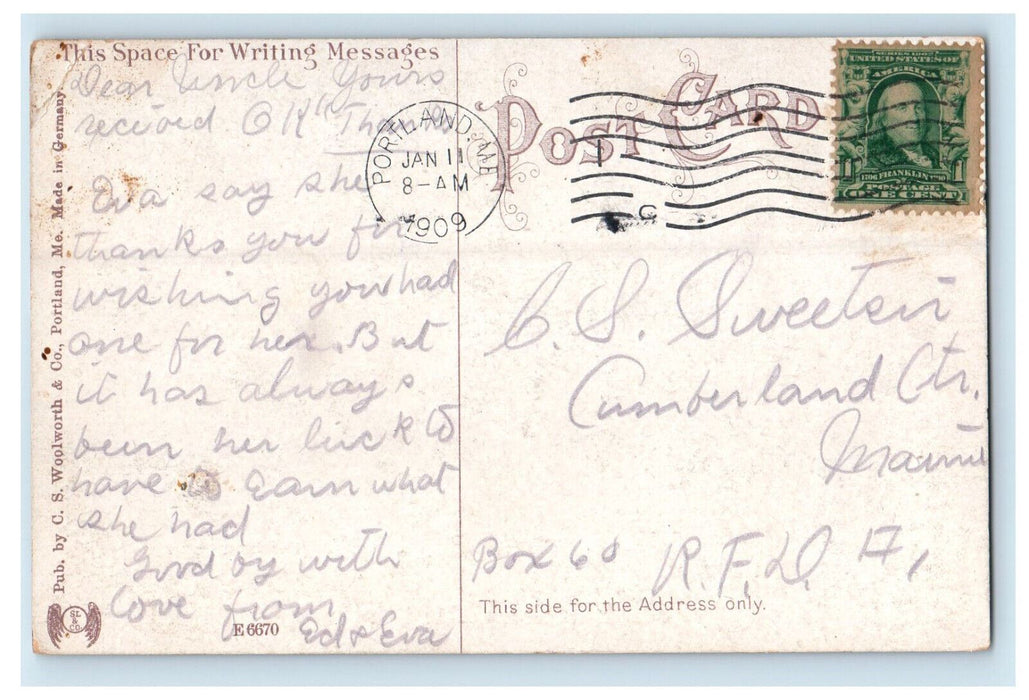 This Space For Writing Messages
Dear Uncle Yours
recieved O K" Thanks
Eva say she
thanks you for
wishing you had
one for her. But
it has always
been her luck to
have to earn what
she had
Good by with
love from
Ed & Eva
Pub. by C. S. Woolworth & Co., Portland, Me. Made in Germany.
SL & CO.
E 6670
POST CARD
PORTLAND, ME.
JAN 11
8-AM
1909
1
C
SERIES 1902
UNITED STATES OF
AMERICA
1706 FRANKLIN 1790
1 POSTAGE 1
ONE CENT
C. S. Sweetsir
Cumberland Ctr.
Maine
Box 60 R.F.D. # 1
This side for the Address only.